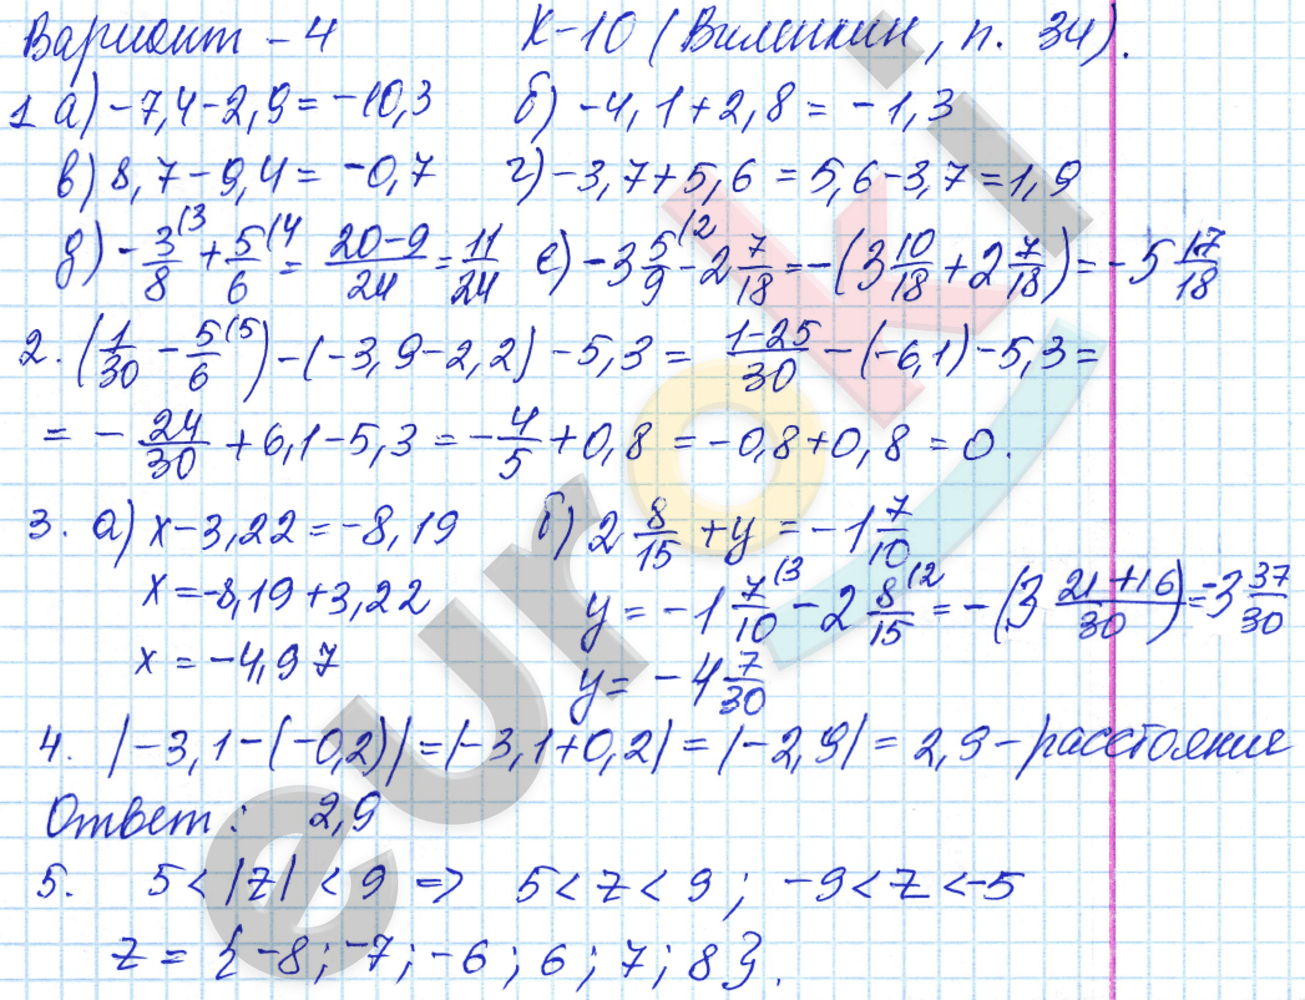 Вариант - 4 К-10 (Виленкин, п. 34).
1 а) -7,4-2,9 = -10,3 б) -4,1+2,8 = -1,3
в) 8,7-9,4 = -0,7 г) -3,7+5,6 = 5,6-3,7 = 1,9
д) -3/8 (3 + 5/6 (4 = 20-9/24 = 11/24 е) -3 5/9 (2 - 2 7/18 = -(3 10/18 + 2 7/18) = -5 17/18
2. (1/30 - 5/6 (5) - (-3,9-2,2) - 5,3 = 1-25/30 - (-6,1) - 5,3 =
= - 24/30 + 6,1-5,3 = -4/5 + 0,8 = -0,8+0,8 = 0.
3. а) x-3,22 = -8,19 б) 2 8/15 + y = -1 7/10
x = -8,19+3,22 y = -1 7/10 (3 - 2 8/15 (2 = -(3 21+16/30) = -3 37/30
x = -4,97 y = -4 7/30
4. |-3,1-(-0,2)| = |-3,1+0,2| = |-2,9| = 2,9 - расстояние
Ответ: 2,9
5. 5 < |z| < 9 => 5 < z < 9; -9 < z < -5
z = {-8; -7; -6; 6; 7; 8}.
euroki